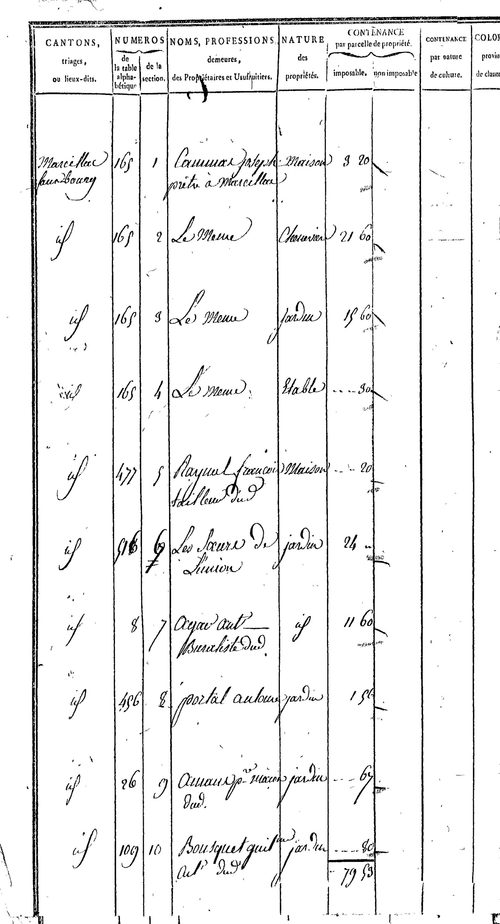 CANTONS,
triages,
ou lieux-dits.
NUMEROS
de la table alpha-bétique
de la section.
NOMS, PROFESSIONS,
demeures,
des Propriétaires et Usufruitiers.
NATURE
des
propriétés.
CONTENANCE
par parcelle de propriété.
imposable,
non imposable
CONTENANCE
par nature
de culture.
Marcillac 165 1 Joseph Maison 3 20
faux Bourg prêtre à Marcillac
id 165 2 Le Meme 21 60
id 165 3 Le Meme jardin 15 60
id 165 4 Le Meme Etable 30
id 477 5 françois Maison 20
tailleur dud
id 516 6 Les Sœurs De jardin 24
L'union
id 8 7 ant id 11 60
Buraliste dud.
id 456 8 portal antoine jardin 1 56
id 26 9 jardin 67
dud.
id 109 10 Bousquet jardin 80
dud
79 53